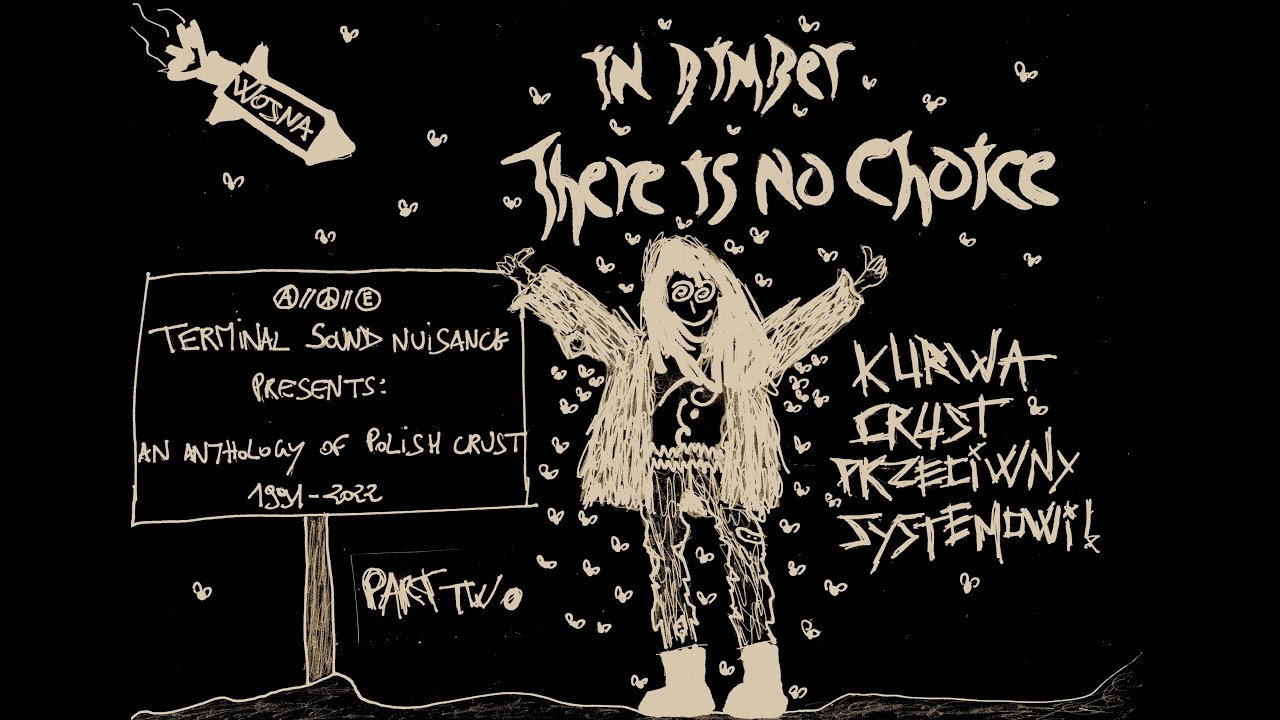 WOJNA
IN BIMBER
There is No Choice
A // // E
TERMINAL SOUND NUISANCE
PRESENTS:
AN ANTHOLOGY OF POLISH CRUST
1991-2022
PART TWO
KURWA
CRUST
PRZECIWNY
SYSTEMOWI!